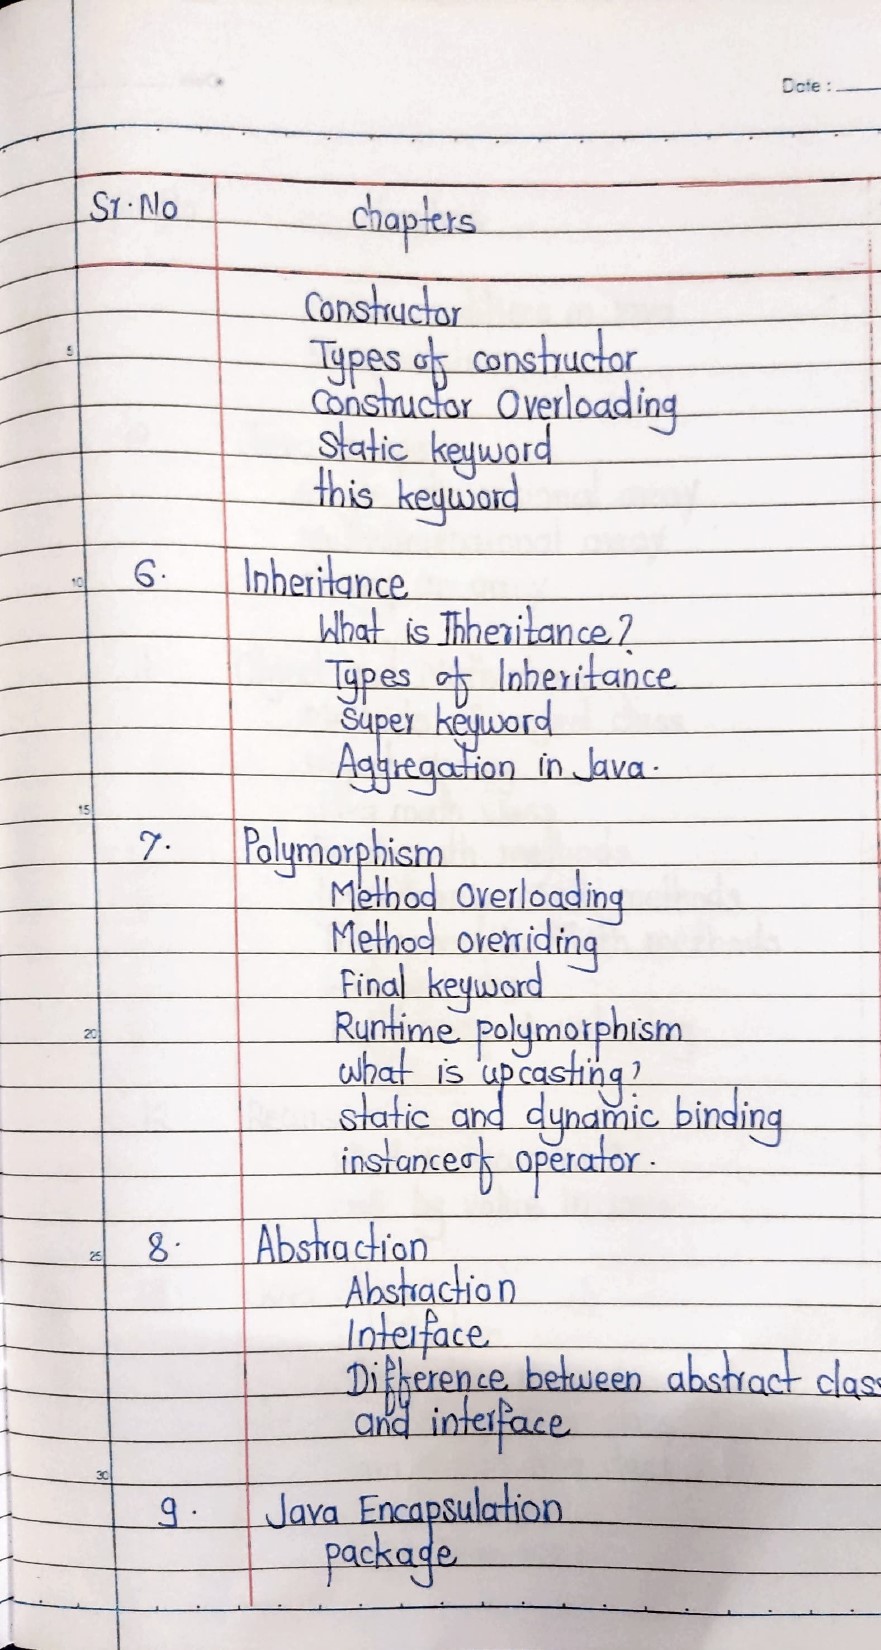 Date :
Sr. No chapters
Constructor
5
Types of constructor
Constructor Overloading
Static keyword
this keyword
10 6. Inheritance
What is Inheritance?
Types of Inheritance
Super keyword
Aggregation in Java.
15
7. Polymorphism
Method Overloading
Method overriding
Final keyword
20 Runtime polymorphism
what is upcasting?
static and dynamic binding
instanceof operator.
25 8. Abstraction
Abstraction
Interface
Difference between abstract class
and interface
30
9. Java Encapsulation
package